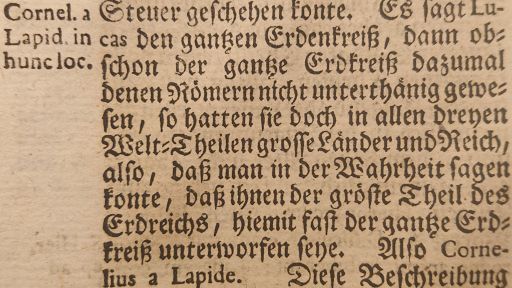 Cornel. a
Lapid. in
hunc loc.
Steuer geschehen konte. Es sagt Lu-
cas den gantzen Erdenkreiß, dann ob-
schon der gantze Erdkreiß dazumal
denen Römern nicht unterthänig gewe-
sen, so hatten sie doch in allen dreyen
Welt-Theilen grosse Länder und Reich,
also, daß man in der Wahrheit sagen
konte, daß ihnen der gröste Theil des
Erdreichs, hiemit fast der gantze Erd-
kreiß unterworfen seye. Also Corne-
lius a Lapide. Diese Beschreibung